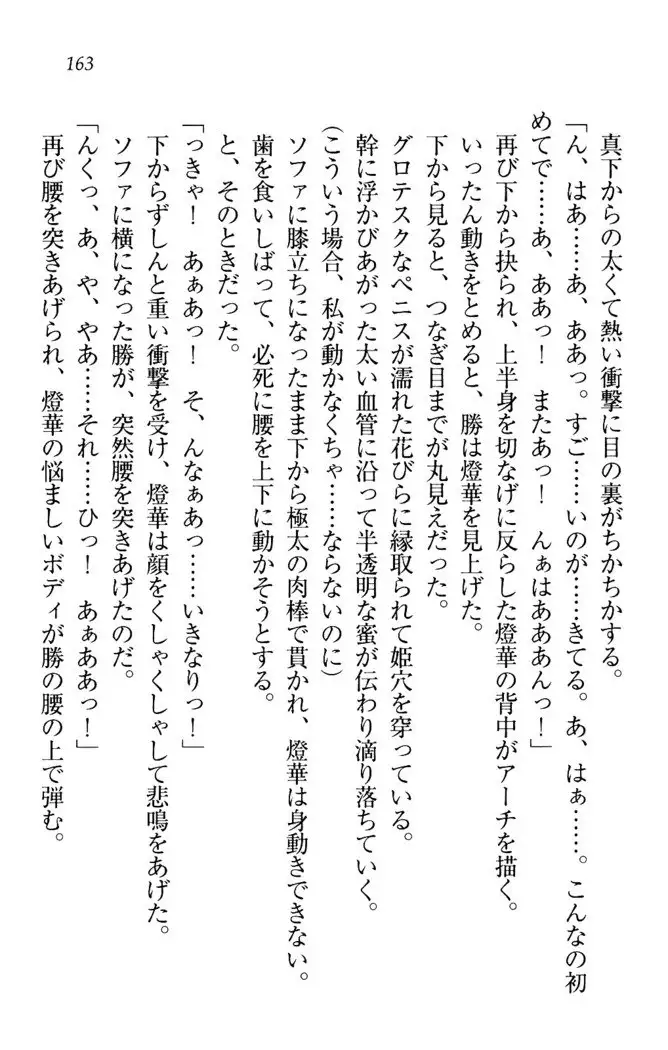 163
真下からの太くて熱い衝撃に目の裏がちかちかする。
「ん、はあ……あ、ああっ。すご……いのが……きてる。あ、はぁ……。こんなの初
めてで……あ、ああっ！　またあっ！　んぁはあああんっ！」
再び下から抉られ、上半身を切なげに反らした燈華の背中がアーチを描く。
いったん動きをとめると、勝は燈華を見上げた。
下から見ると、つなぎ目までが丸見えだった。
グロテスクなペニスが濡れた花びらに縁取られて姫穴を穿っている。
幹に浮かびあがった太い血管に沿って半透明な蜜が伝わり滴り落ちていく。
(こういう場合、私が動かなくちゃ……ならないのに)
ソファに膝立ちになったまま下から極太の肉棒で貫かれ、燈華は身動きできない。
歯を食いしばって、必死に腰を上下に動かそうとする。
と、そのときだった。
「っきゃ！　あぁあっ！　そ、んなぁあっ……いきなりっ！」
下からずしんと重い衝撃を受け、燈華は顔をくしゃくしゃして悲鳴をあげた。
ソファに横になった勝が、突然腰を突きあげたのだ。
「んくっ、あ、や、やあ……それ……ひっ！　あぁああっ！」
再び腰を突きあげられ、燈華の悩ましいボディが勝の腰の上で弾む。